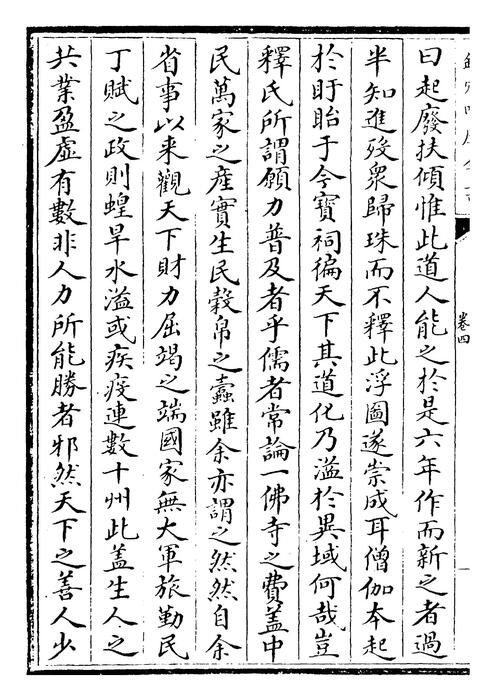 曰起廢扶傾惟此道人能之於是六年作而新之者過
半知進歿衆歸珠而不釋此浮圖遂崇成耳僧伽本起
於盱眙于今寳祠徧天下其道化乃溢於異域何哉豈
釋氏所謂願力普及者乎儒者常論一佛寺之費蓋中
民萬家之産實生民穀帛之蠧雖余亦謂之然然自余
省事以来觀天下財力屈竭之端國家無大軍旅勤民
丁賦之政則蝗旱水溢或疾疫連數十州此蓋生人之
共業盈虚有數非人力所能勝者邪然天下之善人少
卷四